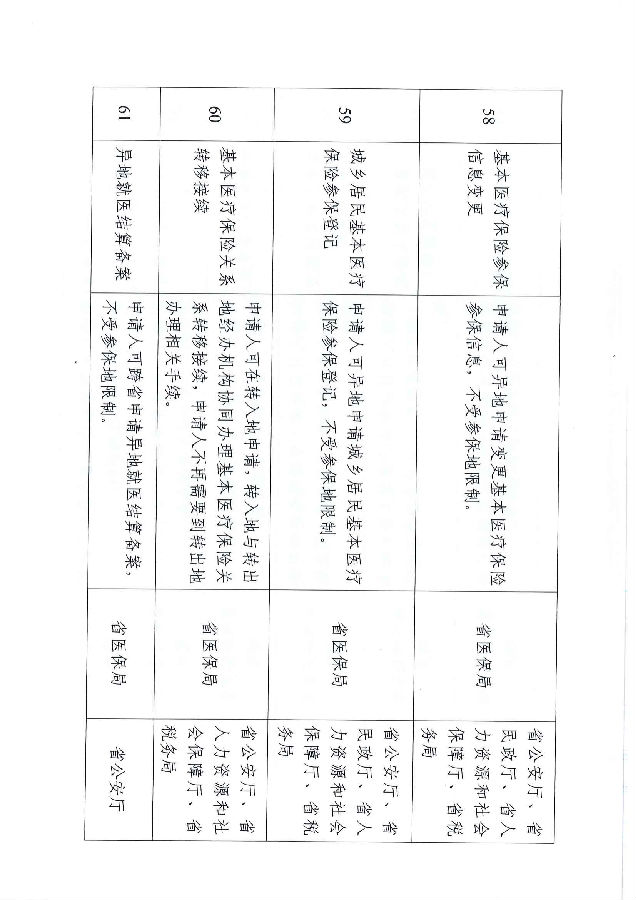 58
基本医疗保险参保
信息变更
申请人可异地申请变更基本医疗保险
参保信息，不受参保地限制。
省医保局
省公安厅、省
民政厅、省人
力资源和社会
保障厅、省税
务局
59
城乡居民基本医疗
保险参保登记
申请人可异地申请城乡居民基本医疗
保险参保登记，不受参保地限制。
省医保局
省公安厅、省
民政厅、省人
力资源和社会
保障厅、省税
务局
60
基本医疗保险关系
转移接续
申请人可在转入地申请，转入地与转出
地经办机构协同办理基本医疗保险关
系转移接续，申请人不再需要到转出地
办理相关手续。
省医保局
省公安厅、省
人力资源和社
会保障厅、省
税务局
61
异地就医结算备案
申请人可跨省申请异地就医结算备案，
不受参保地限制。
省医保局
省公安厅